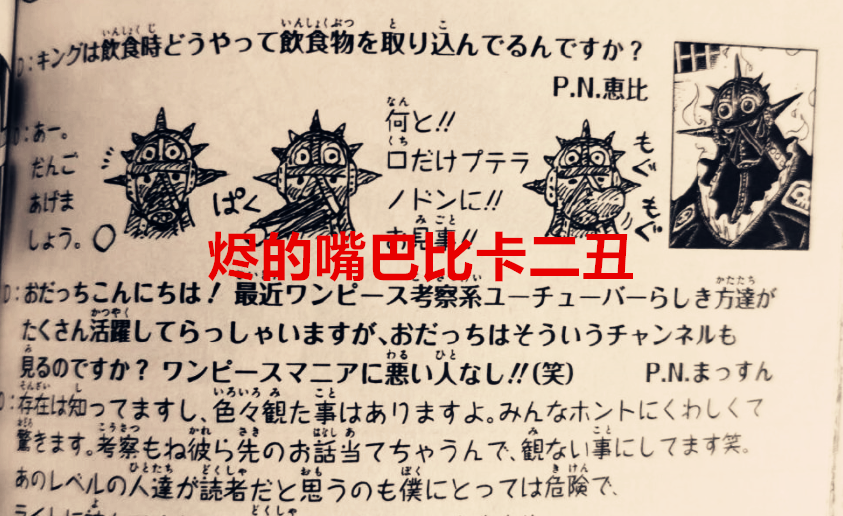 D:キングは飲食時どうやって飲食物を取り込んでるんですか?
P.N.恵比
D:あー。
だんご
あげま
しょう。
ぱく
何と!!
口だけプテラ
ノドンに!!
お見事!!
もぐ
もぐ
烬的嘴巴比卡二丑
D:おだっちこんにちは! 最近ワンピース考察系ユーチューバーらしき方達が
たくさん活躍してらっしゃいますが、おだっちはそういうチャンネルも
見るのですか? ワンピースマニアに悪い人なし!!(笑) P.N.まっすん
D:存在は知ってますし、色々観た事はありますよ。みんなホントにくわしくて
驚きます。考察もね彼ら先のお話当てちゃうんで、観ない事にしてます笑。
あのレベルの人達が読者だと思うのも僕にとっては危険で、